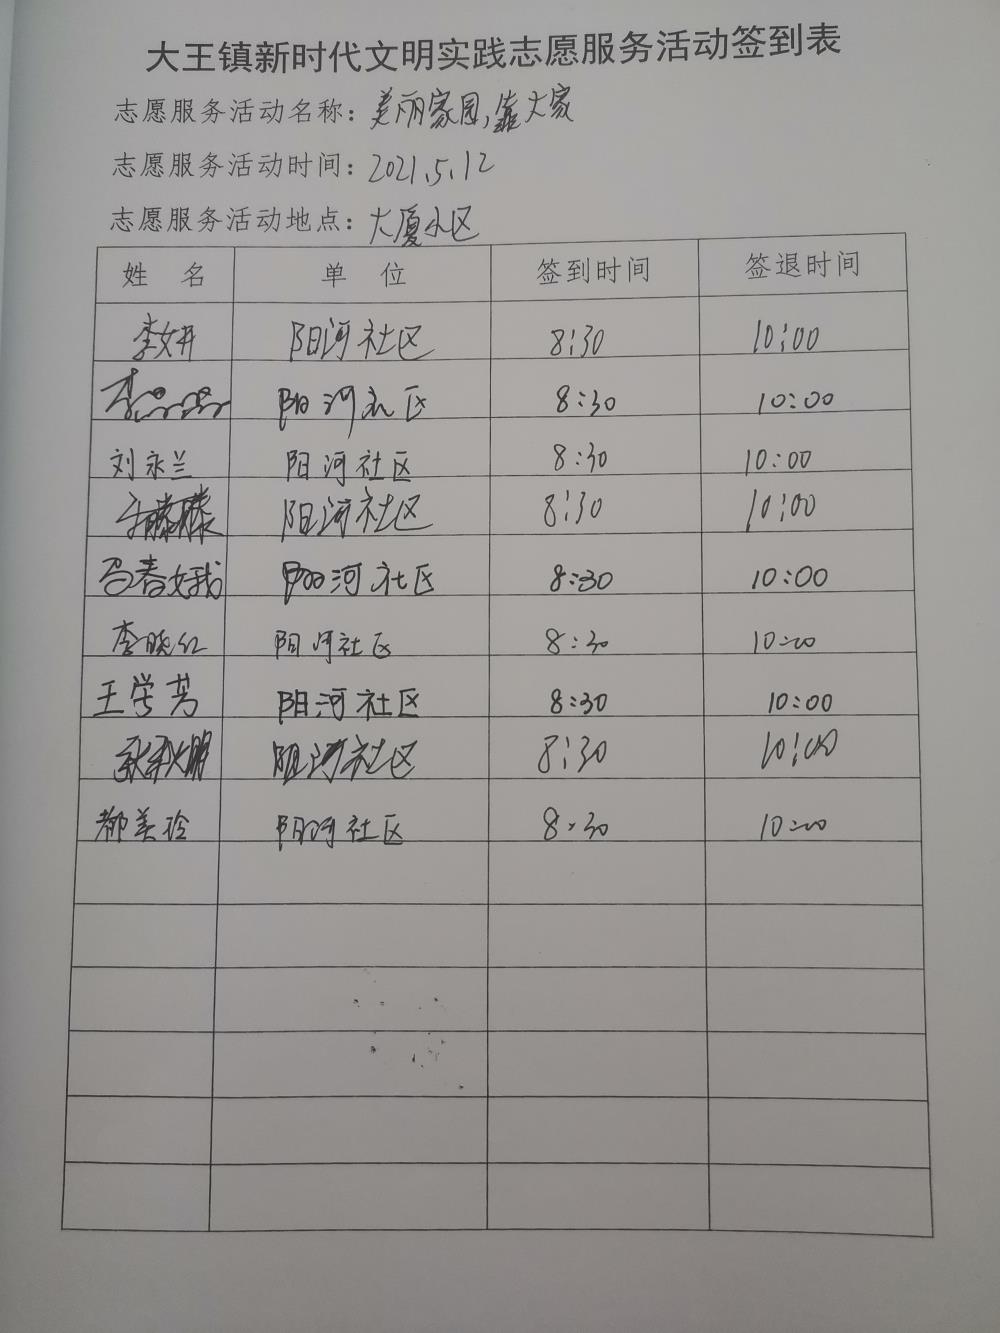 大王镇新时代文明实践志愿服务活动签到表
志愿服务活动名称：美丽家园，靠大家
志愿服务活动时间：2021.5.12
志愿服务活动地点：大厦小区
姓 名 单 位 签到时间 签退时间
李妍 阳河社区 8:30 10:00
李 阳河社区 8:30 10:00
刘永兰 阳河社区 8:30 10:00
于藤藤 阳河社区 8:30 10:00
吕春娥 阳河社区 8:30 10:00
李晓红 阳河社区 8:30 10:00
王学芳 阳河社区 8:30 10:00
阳河社区 8:30 10:00
都美玲 阳河社区 8:30 10:00